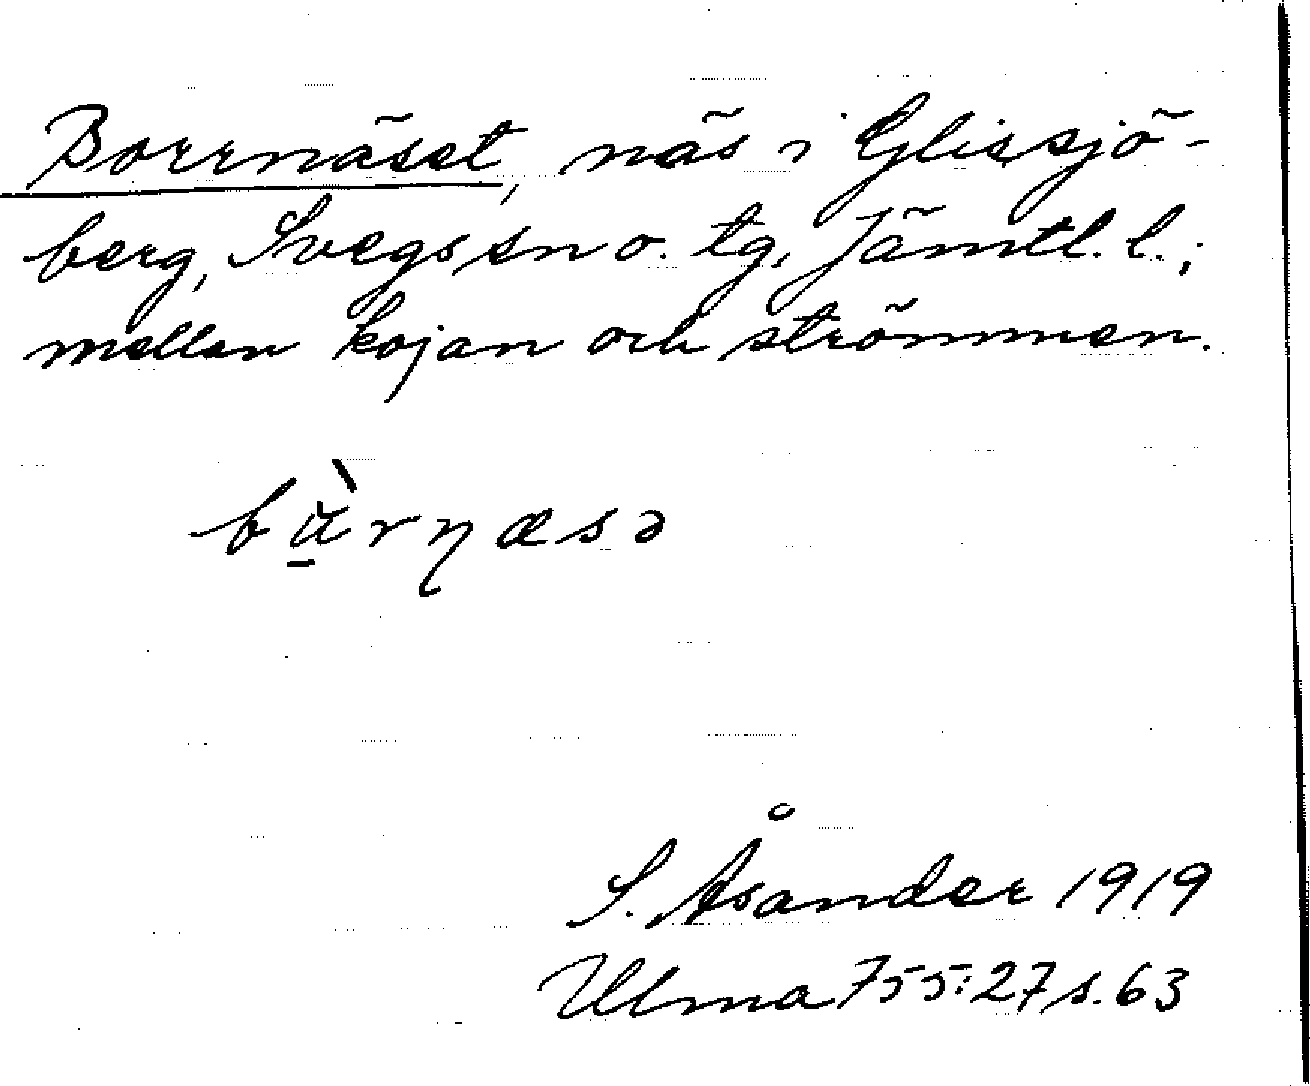 Borrnäset, näs i Glissjö-
berg, Svegs sn o. tg, Jämtl. l.;
mellan kojan och strömmen.
bù̠rɳæsə
S. Åsander 1919
Ulma 755:27 s. 63